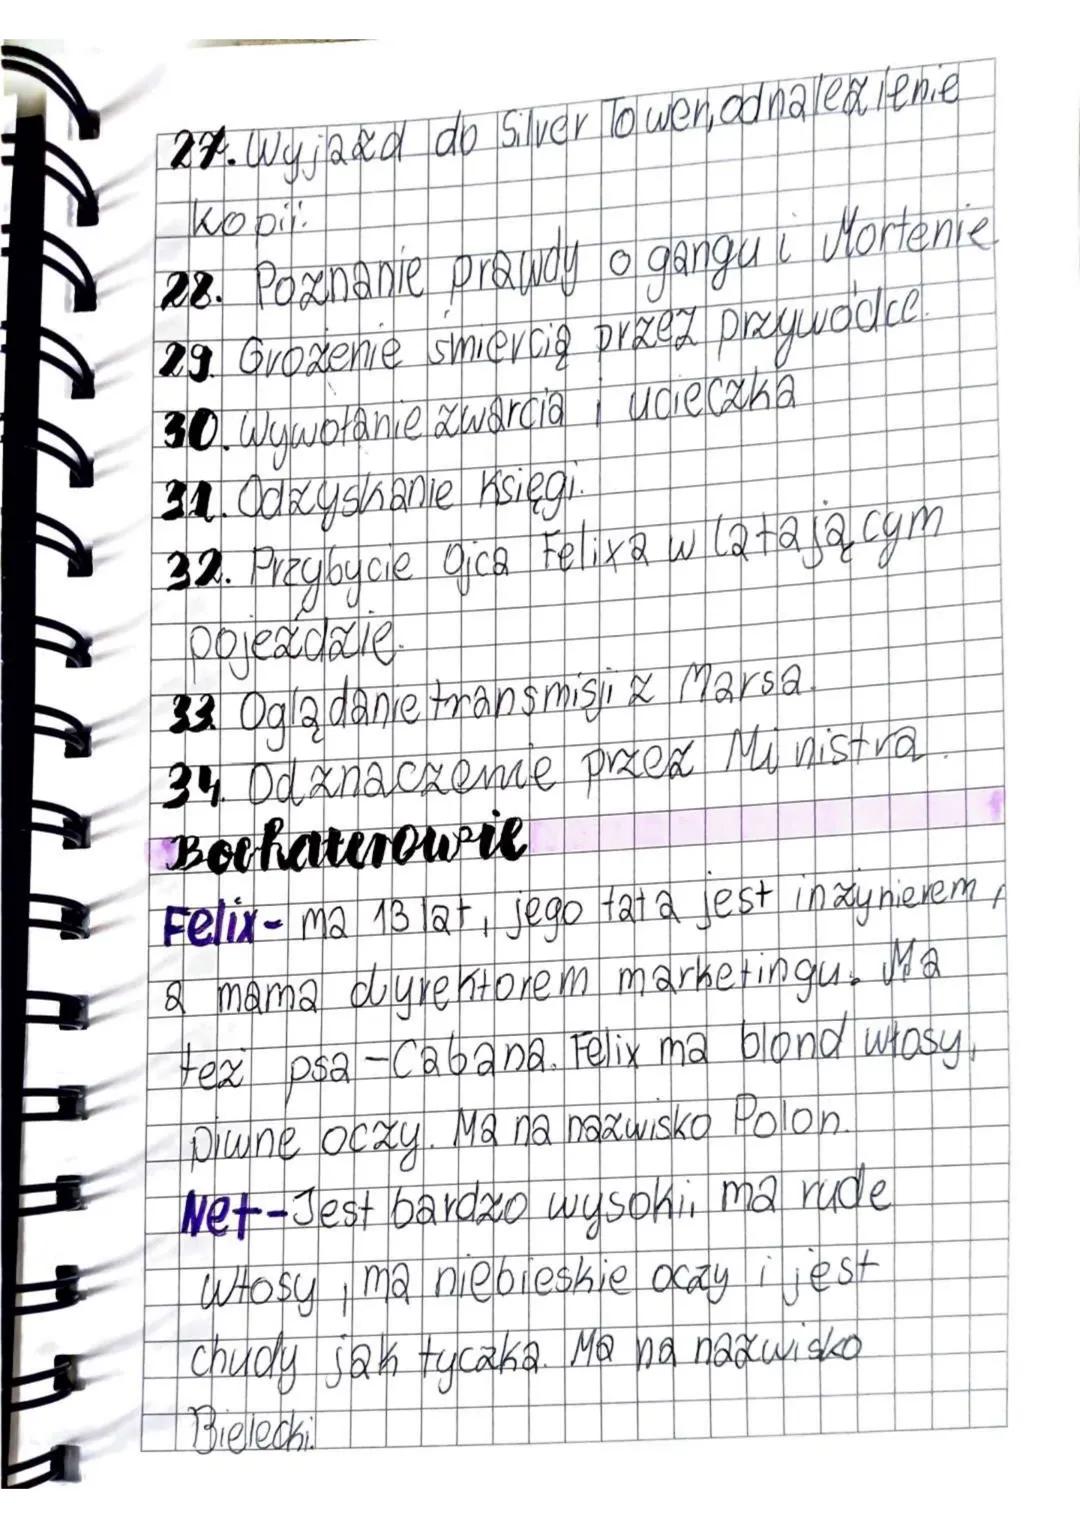 27. Wyjazd do Silver Tower, odnalezienie
kopii.
28. Poznanie prawdy o gangu i Mortenie
29. Grożenie śmiercią przez przywódcę.
30. Wywołanie zwarcia i ucieczka
31. Odzyskanie Księgi.
32. Przybycie ojca Felixa w latającym
pojeździe.
33. Oglądanie transmisji z Marsa.
34. Odznaczenie przez Ministra.
Bochaterowie
Felix- ma 13 lat, jego tata jest inżynierem,
a mama dyrektorem marketingu. Ma
też psa -Cabana. Felix ma blond włosy,
piwne oczy. Ma na nazwisko Polon.
Net-Jest bardzo wysoki, ma rude
włosy, ma niebieskie oczy i jest
chudy jak tyczka. Ma na nazwisko
Bielecki.